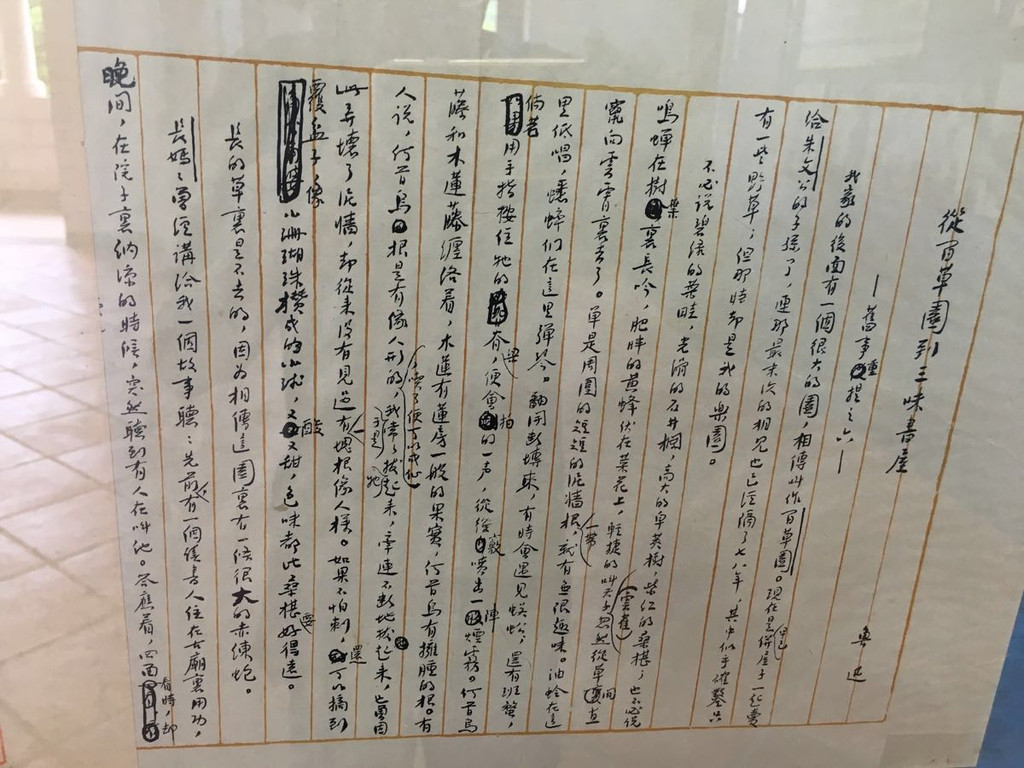 從百草園到三味書屋
——舊事重提之六——
魯迅
我家的後面有一個很大的園,相傳叫作百草園。現在是早已併屋子一起賣
給朱文公的子孫了,連那最末次的相見也已經隔了七八年,其中似乎確鑿只
有一些野草;但那時却是我的樂園。
不必說碧綠的菜畦,光滑的石井欄,高大的皁莢樹,紫紅的桑椹;也不必說
鳴蟬在樹葉裏長吟,肥胖的黃蜂伏在菜花上,輕捷的叫天子(雲雀)忽然從草間直
竄向雲霄裏去了。單是周圍的短短的泥牆根一帶,就有無限趣味。油蛉在這
里低唱,蟋蟀們在這里彈琴。翻開斷磚來,有時會遇見蜈蚣;還有班蝥,
倘若用手指按住牠的脊梁,便會拍的一声,從後竅噴出一陣煙霧。何首烏
藤和木蓮藤纏洛着,木蓮有蓮房一般的果實,何首烏有擁腫的根。有
人說,何首烏根是有像人形的,喫了便可以成仙,我于是常常拔牠起來,牽連不斷地拔起來,也曾因
此弄壞了泥牆,却從來沒有見過有一塊根像人樣。如果不怕刺,還可以摘到
覆盆子,像小珊瑚珠攢成的小球,又酸又甜,色味都比桑椹要好得遠。
長的草裏是不去的,因为相傳這園裏有一條很大的赤練蛇。
長媽媽曾經講給我一個故事聽:先前,有一個讀書人住在古廟裏用功,
晚间,在院子裏納凉的時候,突然聽到有人在叫他。答應着,四面看時,却